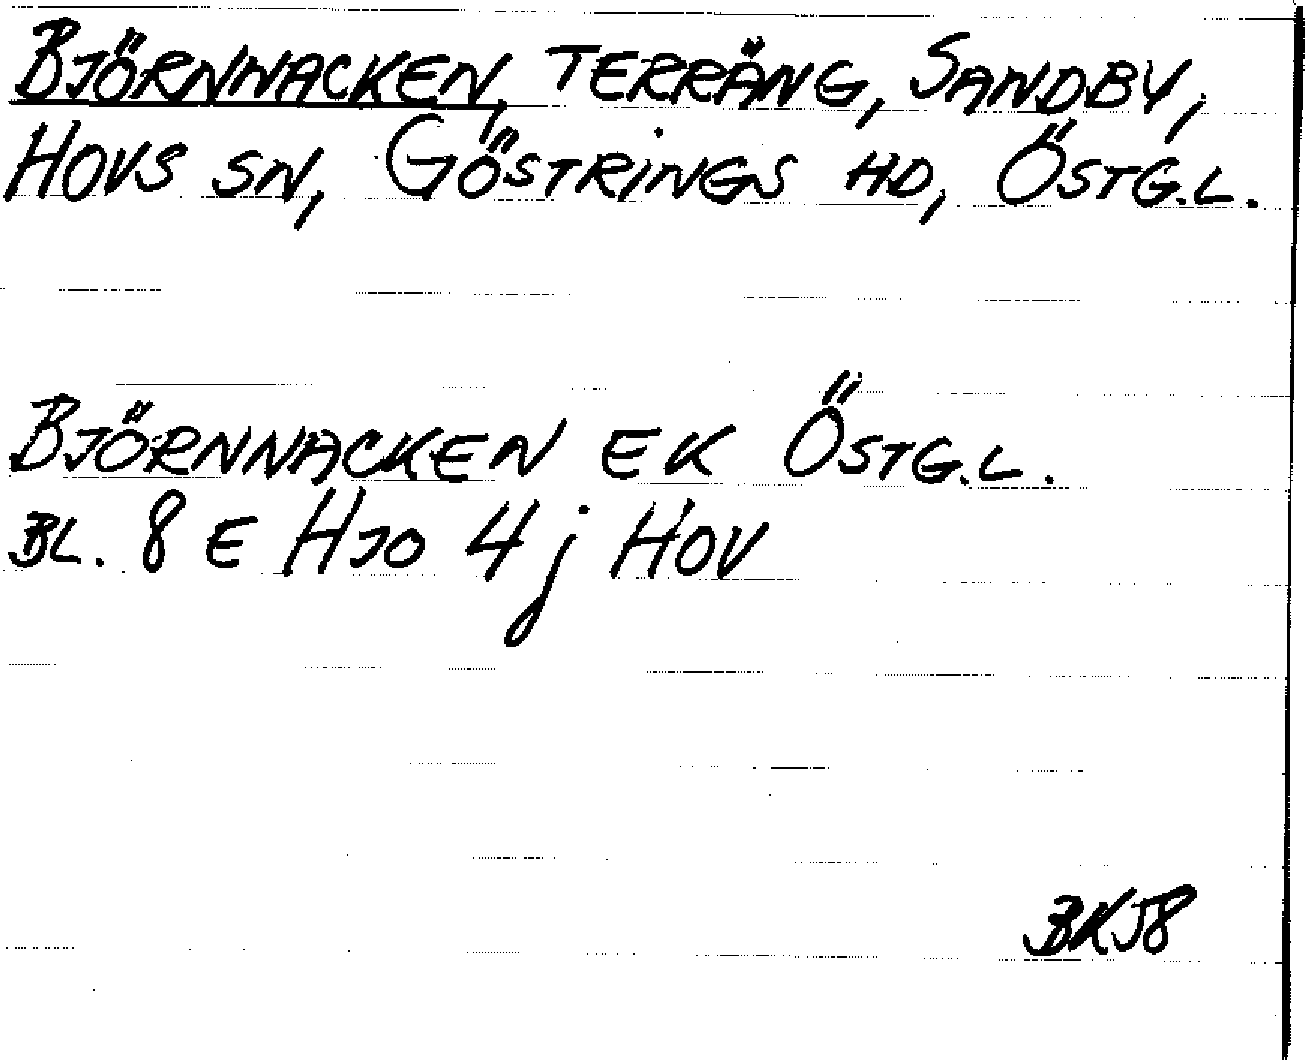 BJÖRNNACKEN, TERRÄNG, SANDBY,
HOVS SN, GÖSTRINGS HD, ÖSTG.L.
BJÖRNNACKEN EK ÖSTG.L.
BL. 8 E HJO 4 j HOV
BKJ8